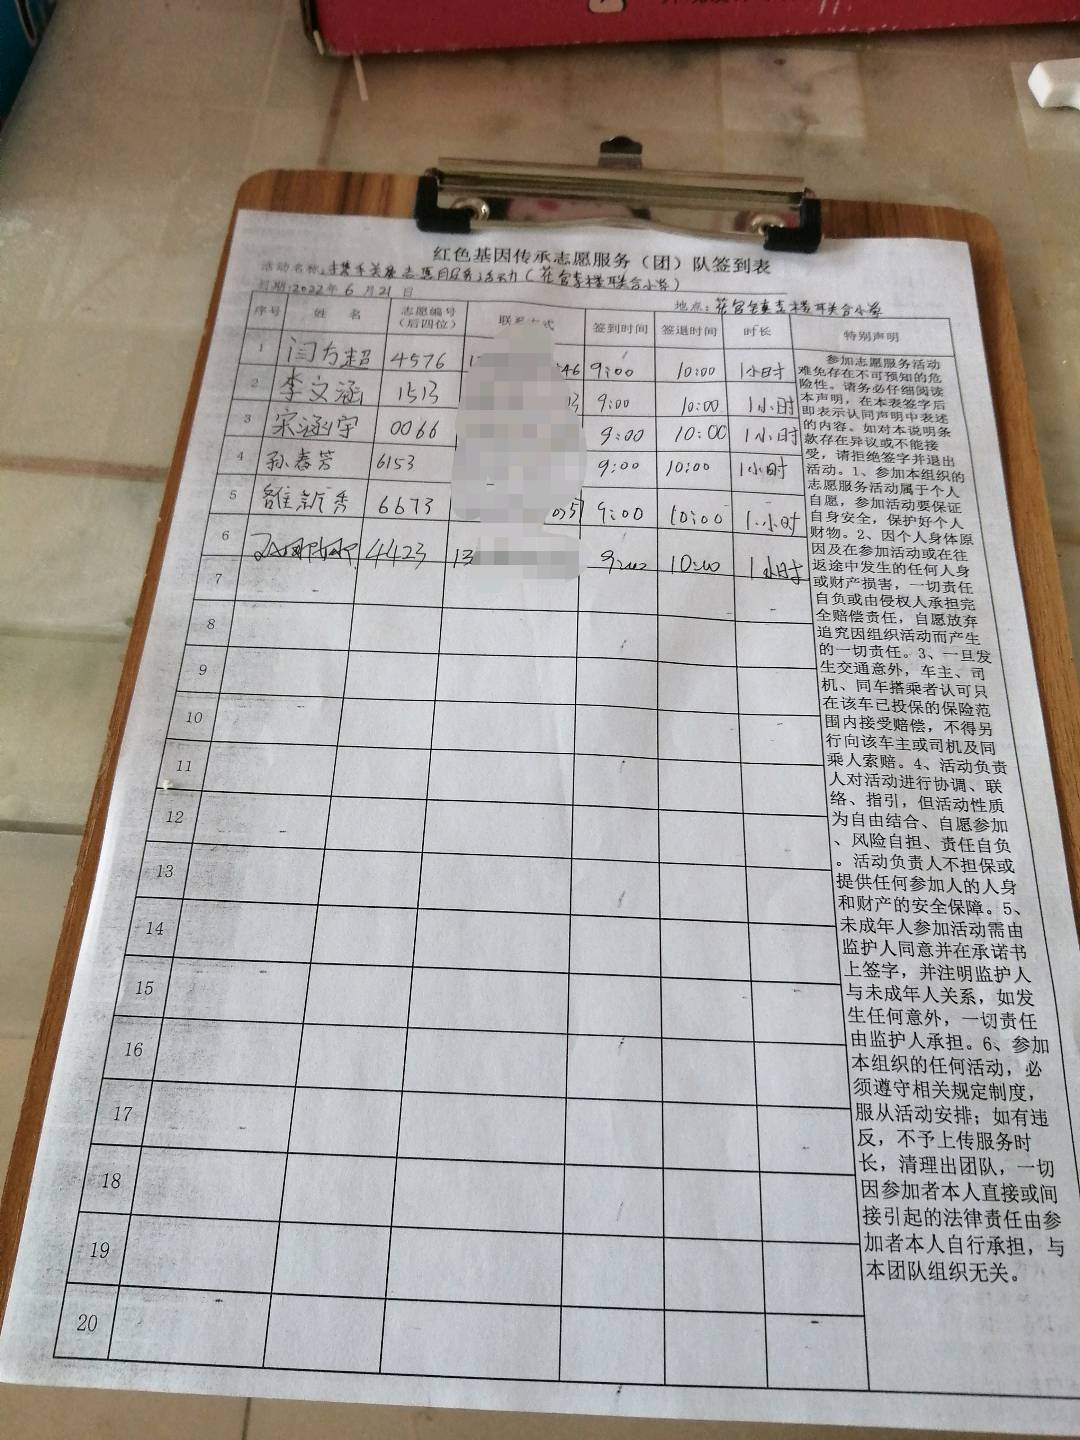 红色基因传承志愿服务（团）队签到表
活动名称：志愿服务活动（花官李楼联合小学）
日期：2022年6月21日
地点：花官镇李楼联合小学
序号 姓 名 志愿编号（后四位） 联系方式 签到时间 签退时间 时长 特别声明
1 闫方超 4576 46 9:00 10:00 1小时
2 李文涵 1513 13 9:00 10:00 1小时
3 宋涵宇 0066 9:00 10:00 1小时
4 孙春芳 6153 9:00 10:00 1小时
5 新秀 6673 9:00 10:00 1小时
6 4423 13 9:00 10:00 1小时
7
8
9
10
11
12
13
14
15
16
17
18
19
20
参加志愿服务活动
难免存在不可预知的危
险性。请务必仔细阅读
本声明，在本表签字后
即表示认同声明中表述
的内容。如对本说明条
款存在异议或不能接
受，请拒绝签字并退出
活动。1、参加本组织的
志愿服务活动属于个人
自愿，参加活动要保证
自身安全，保护好个人
财物。2、因个人身体原
因及在参加活动或在往
返途中发生的任何人身
或财产损害，一切责任
自负或由侵权人承担完
全赔偿责任，自愿放弃
追究因组织活动而产生
的一切责任。3、一旦发
生交通意外，车主、司
机、同车搭乘者认可只
在该车已投保的保险范
围内接受赔偿，不得另
行向该车主或司机及同
乘人索赔。4、活动负责
人对活动进行协调、联
络、指引，但活动性质
为自由结合、自愿参加
、风险自担、责任自负
。活动负责人不担保或
提供任何参加人的人身
和财产的安全保障。5、
未成年人参加活动需由
监护人同意并在承诺书
上签字，并注明监护人
与未成年人关系，如发
生任何意外，一切责任
由监护人承担。6、参加
本组织的任何活动，必
须遵守相关规定制度，
服从活动安排；如有违
反，不予上传服务时
长，清理出团队，一切
因参加者本人直接或间
接引起的法律责任由参
加者本人自行承担，与
本团队组织无关。